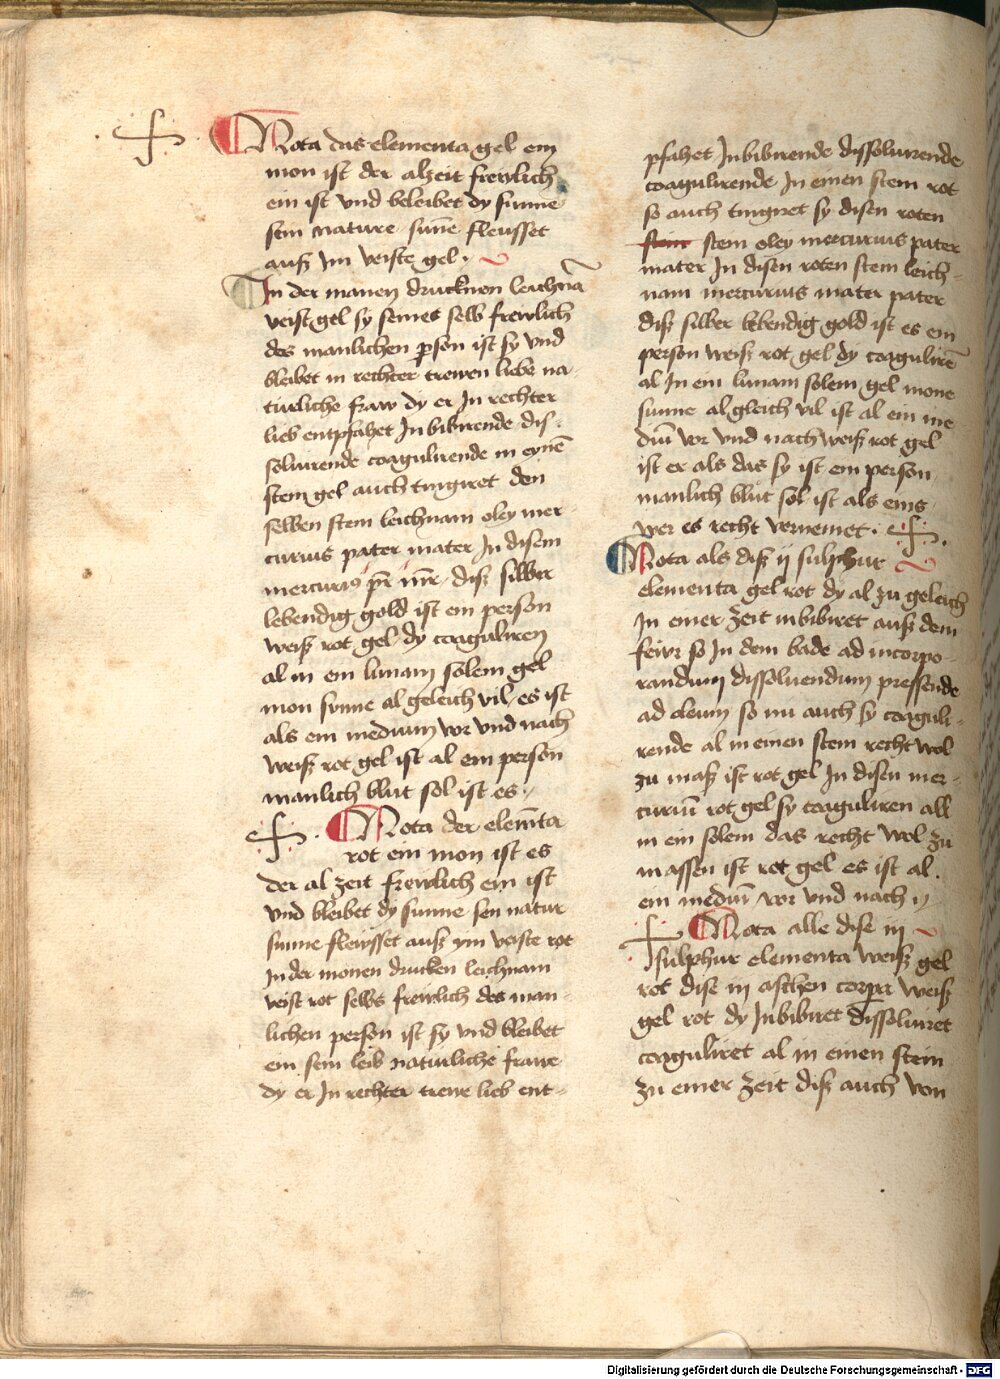 Nota das elementa gel ein
mon ist der alzeit frewlich
ein ist vnd beleibet dy sunne
sein nature sunne fleusset
auß im veiste gel
In der manen drucknen leichna
veist gel sy seines selb frewlich
des manlichen pson ist sy vnd
bleibet in rechter trewen liebe na
turliche fraw dy er In rechter
lieb entpfahet Inbibirende dis
soluirende coagulirende in eynē
stein gel auch tingiret den
selben stein leichnam oley mer
curius pater mater In disem
mercurius pr̄ mr̄ diß silber
lebendig gold ist ein person
weiß rot gel dy coaguliren
al in ein lunam solem gel
mon sunne al geleich vil es ist
als ein medium vor vnd nach
weiß rot gel ist al ein person
manlich blut sol ist es
Nota der elemēta
rot ein mon ist es
der al zeit frewlich ein ist
vnd bleibet dy sunne sein natur
sunne flewsset auß ym veiste rot
In der monen drucken leichnam
veist rot selbs frewlich des man
lichen person ist sy vnd bleibet
ein sein leib naturliche frawe
dy er In rechter trewe lieb ent=
pfahet Inbibirende dissoluirende
coagulirende In einen stein rot
so auch tingiret sy disen roten
stein stein oley mercurius pater
mater In disen roten stein leich
nam mercurius mater pater
diß silber lebendig gold ist es ein
person weiß rot gel dy coagulirē
al In ein lunam solem gel mone
sunne al gleich vil ist al ein me
diū vor vnd nach weiß rot gel
ist er als das sy ist ein person
manlich blut sol ist als eins
wer es recht vernemet
Nota als diß ij sulphur
elementa gel rot dy al zu geleich
In einer zeit inbibiret auß dem
feiwr so In dem bade ad incorpo
randum dissoluendum pressende
ad oleum so nu auch sy coaguli=
rende al in einen stein recht wol
zu maß ist rot gel In disen mer=
curiū rot gel sy coaguliren all
in ein solem das recht wol zu
massen ist rot gel es ist al
ein mediū vor vnd nach
Nota alle dise iij
sulphur elementa weiß gel
rot dise iij aschen corpa weiß
gel rot dy Inbibiret dissoluiret
coaguliret al in einen stein
zu einer zeit diß auch von
Digitalisierung gefördert durch die Deutsche Forschungsgemeinschaft - DFG